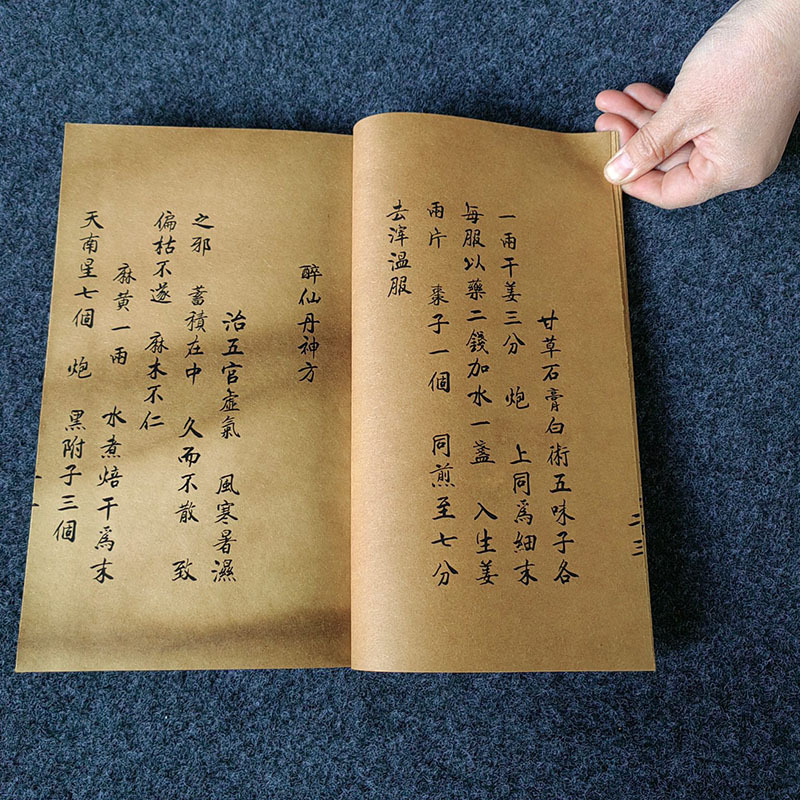 甘草石膏白術五味子各
一兩干姜三分 炮 上同爲細末
每服以藥二錢加水一盞 入生姜
兩片 棗子一個 同煎至七分
去滓溫服
二三
醉仙丹神方
治五官虛氣 風寒暑濕
之邪 蓄積在中 久而不散 致
偏枯不遂 麻木不仁
麻黃一兩 水煮焙干爲末
天南星七個 炮 黑附子三個